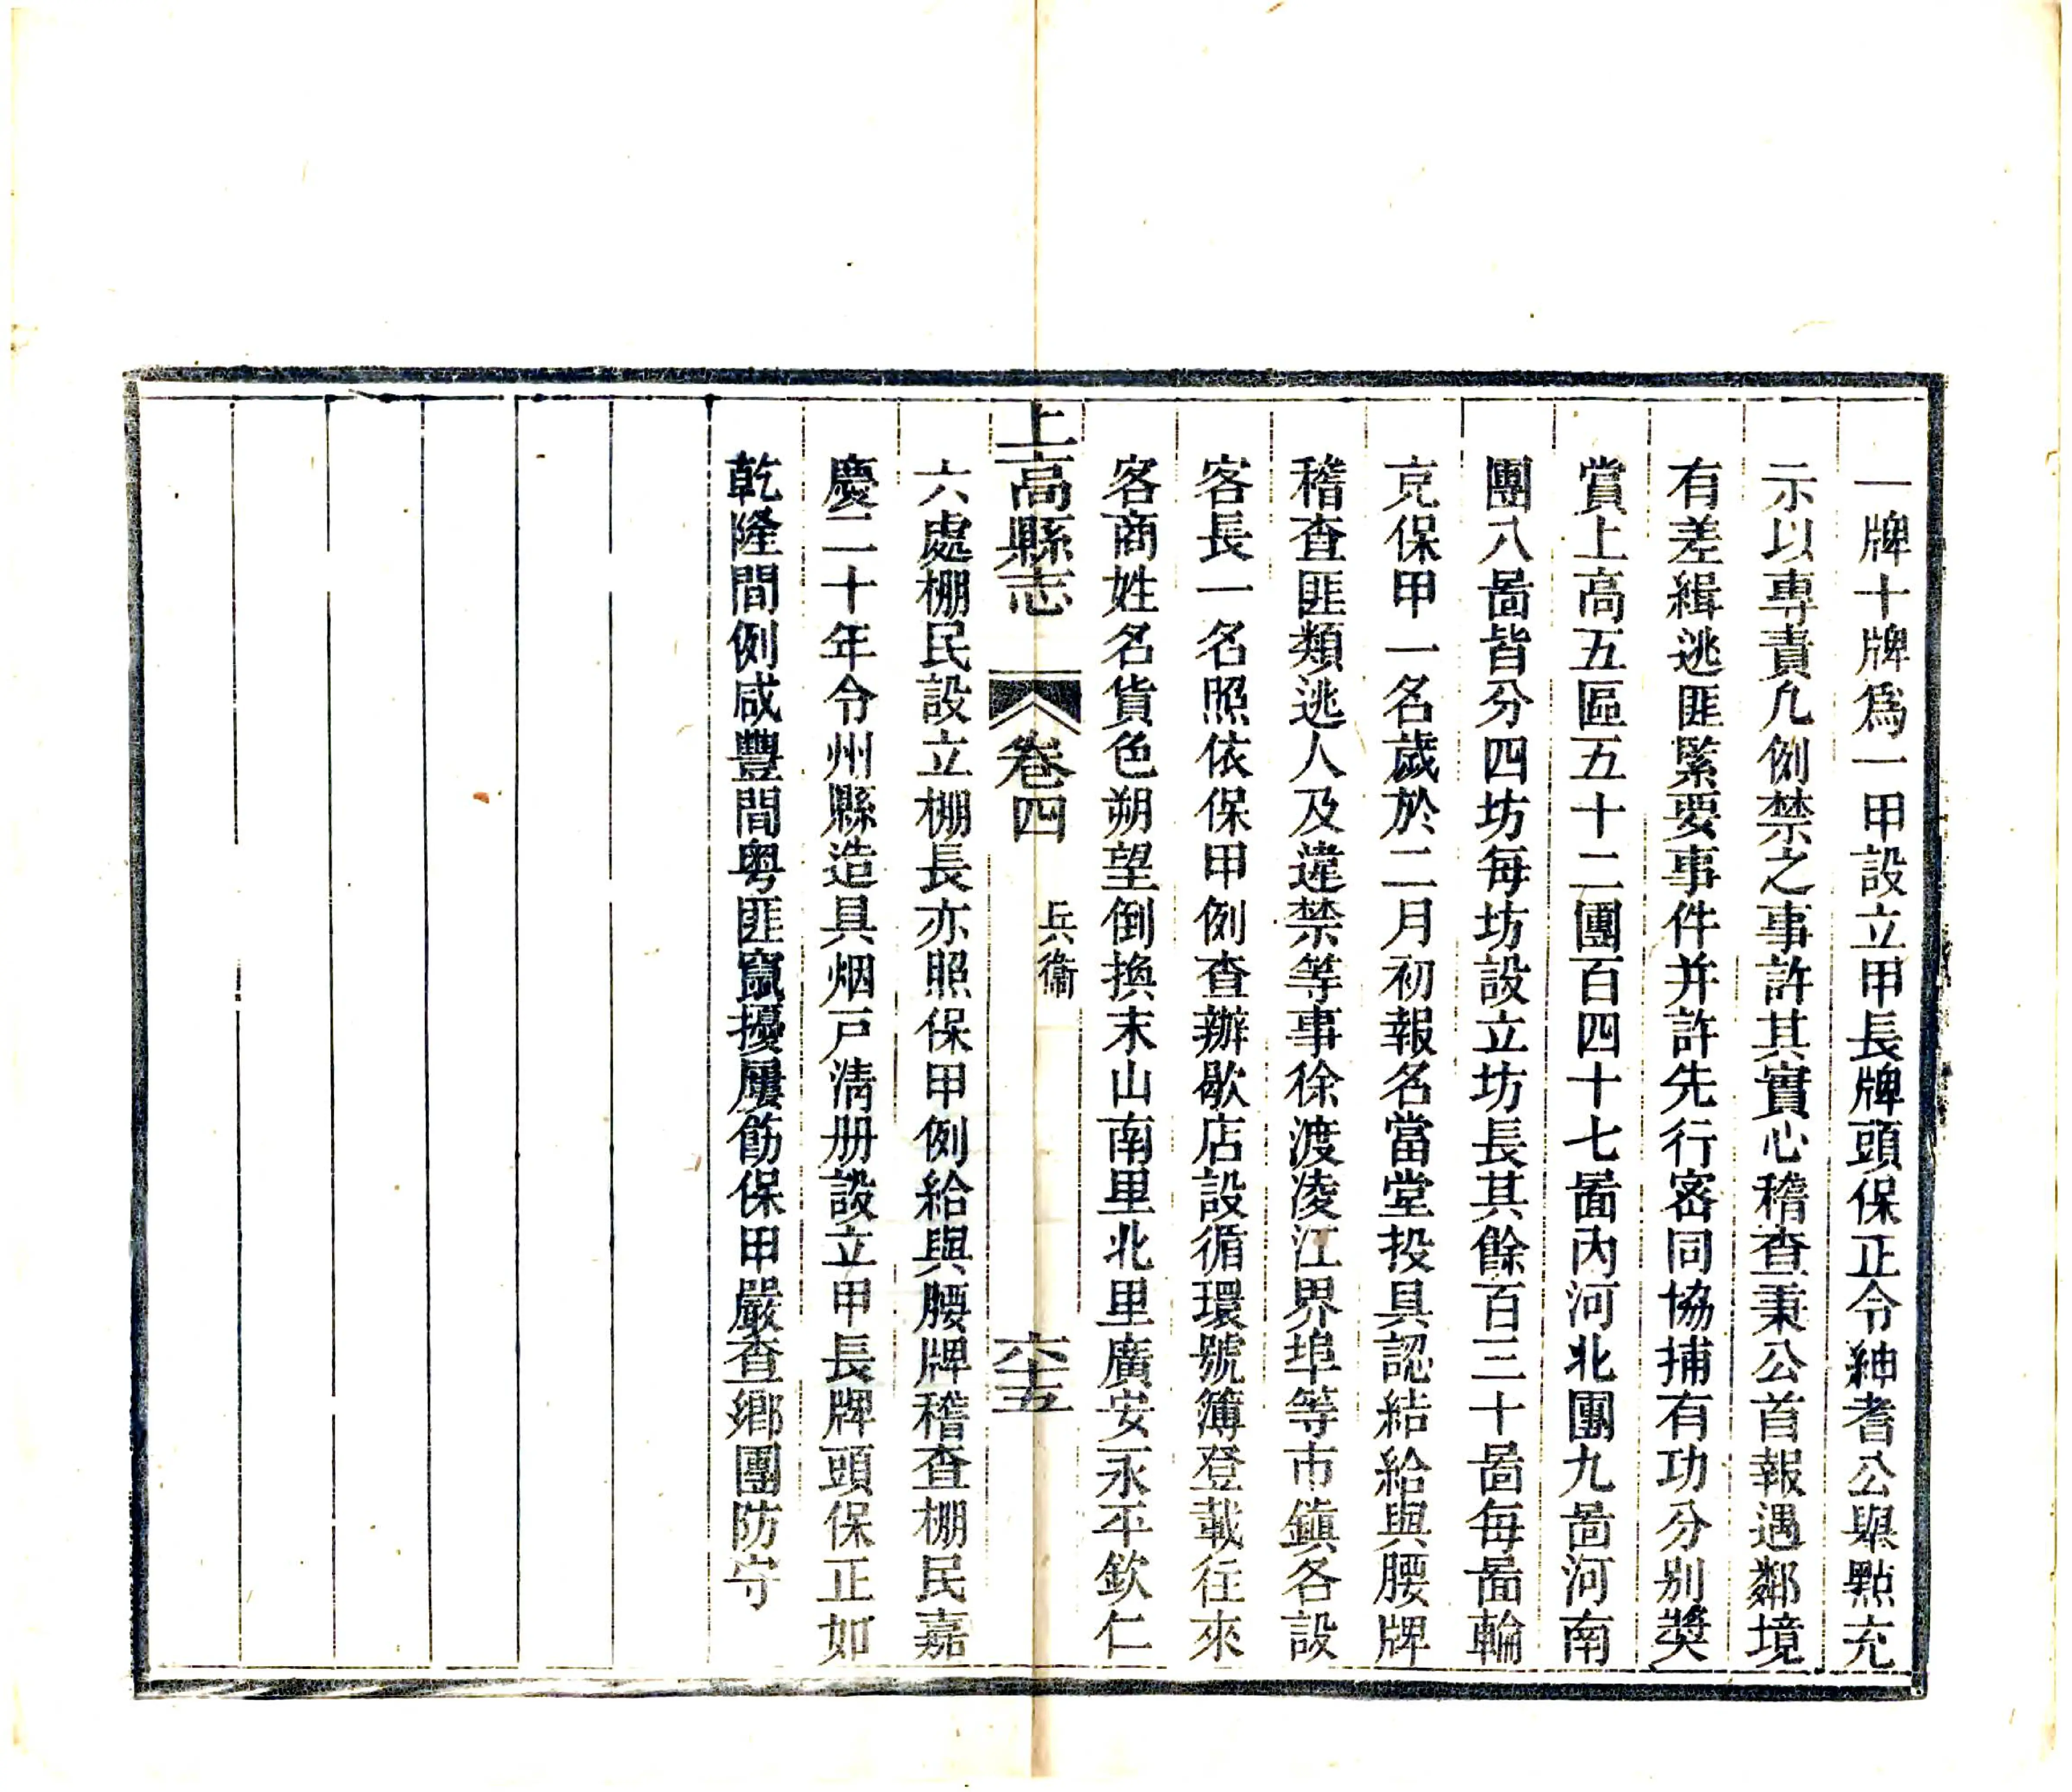 一牌十牌爲一甲設立甲長牌頭保正令紳耆公舉點充
示以專責凢例禁之事許其實心稽查秉公首報遇鄰境
有差緝逃匪緊要事件并許先行密同協捕有功分别奬
賞上高五區五十二團百四十七啚內河北團九啚河南
團八啚皆分四坊每坊設立坊長其餘百三十啚每啚輪
克保甲一名歲於二月初報名當堂投具認結給與腰牌
稽查匪類逃人及違禁等事徐渡凌江界埠等市鎮各設
客長一名照依保甲例查辦歇店設循環號簿登載往來
客商姓名貨色朔望倒換末山南里北里廣安永平欽仁
上高縣志 卷四 兵衞 六十五
六處棚民設立棚長亦照保甲例給與腰牌稽查棚民嘉
慶二十年令州縣造具烟戸清册設立甲長牌頭保正如
乾隆間例咸豐間粤匪竄擾屢飭保甲嚴查鄉團防守